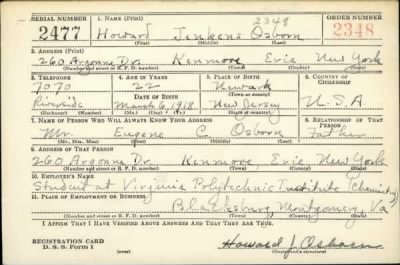 SERIAL NUMBER 1. NAME (Print) 2348 ORDER NUMBER
2477 Howard Jenkens Osborn 2348
(First) (Middle) (Last)
2. ADDRESS (Print)
260 Argonne Dr. Kenmore Erie New York
(Number and street or R. F. D. number) (Town) (County) (State)
3. TELEPHONE 4. AGE IN YEARS 5. PLACE OF BIRTH 6. COUNTRY OF CITIZENSHIP
7070 22 Newark
DATE OF BIRTH
Riverside March 6, 1918 New Jersey U.S.A
(Exchange) (Number) (Mo.) (Day) (Yr.) (State or country)
7. NAME OF PERSON WHO WILL ALWAYS KNOW YOUR ADDRESS 8. RELATIONSHIP OF THAT PERSON
Mr. Eugene C. Osborn Father
(Mr., Mrs., Miss) (First) (Middle) (Last)
9. ADDRESS OF THAT PERSON
260 Argonne Dr. Kenmore, Erie, New York
(Number and street or R. F. D. number) (Town) (County) (State)
10. EMPLOYER'S NAME
Student at Virginia Polytechnic Institute (Chemistry)
11. PLACE OF EMPLOYMENT OR BUSINESS
Blacksburg Montgomery, Va
(Number and street or R. F. D. number) (Town) (County) (State)
I AFFIRM THAT I HAVE VERIFIED ABOVE ANSWERS AND THAT THEY ARE TRUE.
REGISTRATION CARD
D. S. S. Form 1 Howard J. Osborn
(Registrant's signature)